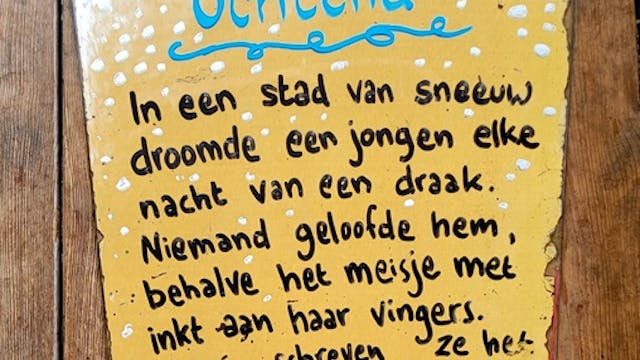 In een stad van sneeuw
droomde een jongen elke
nacht van een draak.
Niemand geloofde hem,
behalve het meisje met
inkt aan haar vingers.
schreven ze het